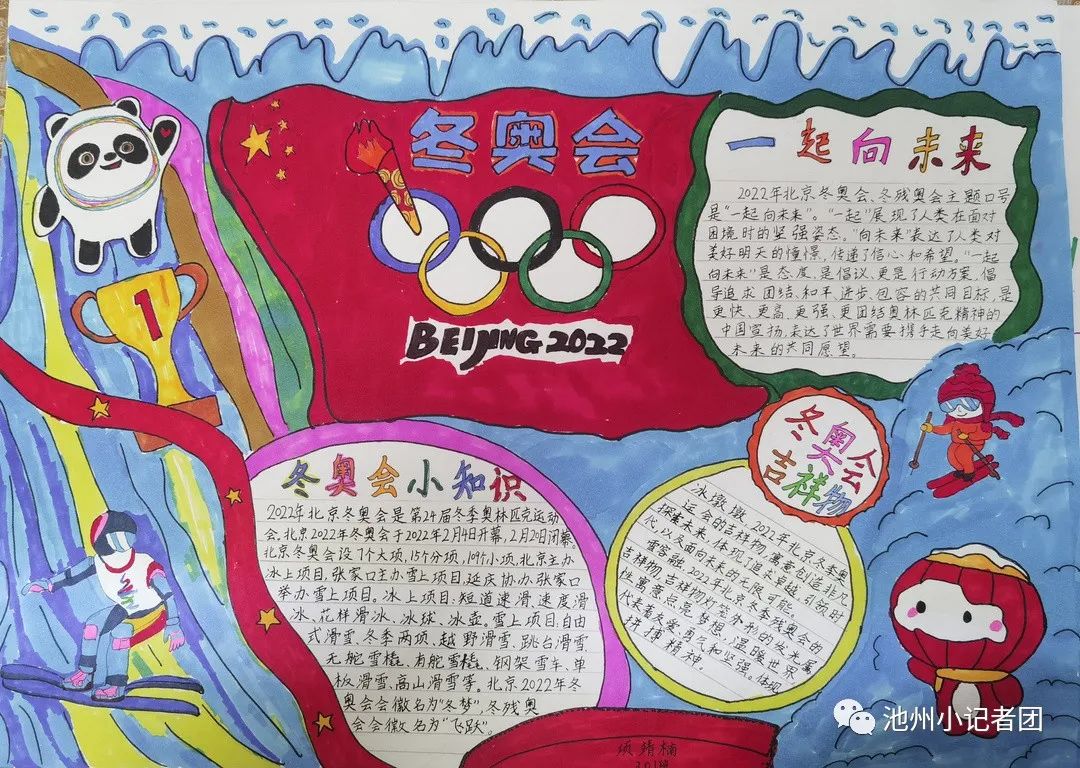 冬奥会
BEIJING 2022
1
一起向未来
2022年北京冬奥会、冬残奥会主题口号
是“一起向未来”。“一起”展现了人类在面对
困境时的坚强姿态。“向未来”表达了人类对
美好明天的憧憬,传递了信心和希望。“一起
向未来”是态度、是倡议、更是行动方案,倡
导追求团结、和平、进步、包容的共同目标,是
更快、更高、更强、更团结奥林匹克精神的
中国宣扬,表达了世界需要携手走向美好
未来的共同愿望。
冬奥会小知识
2022年北京冬奥会是第24届冬季奥林匹克运动
会,北京2022年冬奥会于2022年2月4日开幕,2月20日闭幕。
北京冬奥会设7个大项,15个分项,109个小项,北京主办
冰上项目,张家口主办雪上项目,延庆协办张家口
举办雪上项目。冰上项目:短道速滑、速度滑
冰、花样滑冰、冰球、冰壶。雪上项目:自由
式滑雪、冬季两项、越野滑雪、跳台滑雪、
无舵雪橇、有舵雪橇、钢架雪车、单
板滑雪、高山滑雪等。北京2022年冬
奥会会徽名为“冬梦”,冬残奥
会会徽名为“飞跃”。
冬奥会
吉祥物
冰墩墩,2022年北京冬季奥
运会的吉祥物,寓意创造非凡、
探索未来,体现了追求卓越,引领时
代,以及面向未来的无限可能。
雪容融,2022年北京冬季残奥会的
吉祥物,吉祥物灯笼外形的
性寓意点亮梦想,温暖世界,
代表着友爱、勇气和坚强。体现
拼搏精神。
项靖楠
301班
池州小记者团